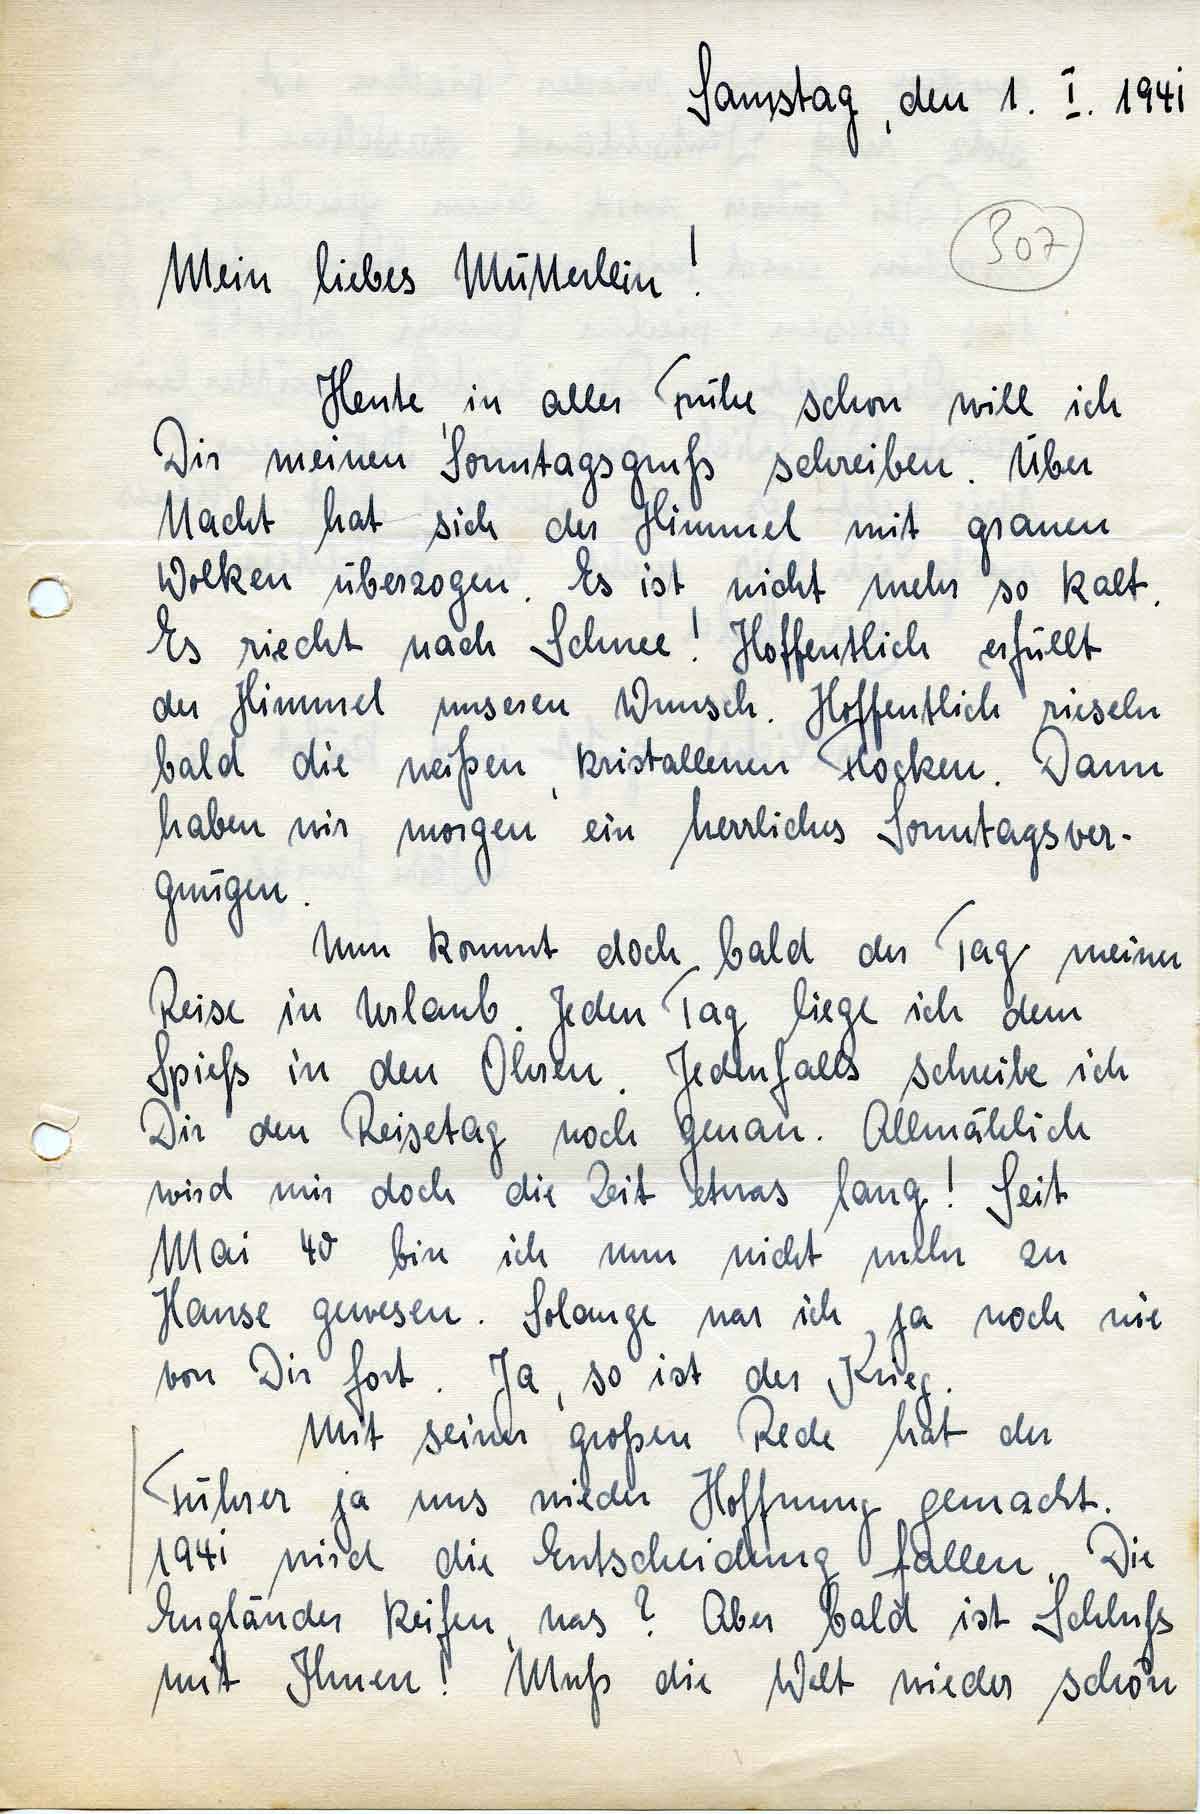 Samstag, den 1. I. 1941
307
Mein liebes Mütterlein!
Heute, in aller Frühe schon will ich
Dir meinen Sonntagsgruß schreiben. Über
Nacht hat sich der Himmel mit grauen
Wolken überzogen. Es ist nicht mehr so kalt.
Es riecht nach Schnee! Hoffentlich erfüllt
der Himmel unseren Wunsch. Hoffentlich rieseln
bald die weißen, kristallenen Flocken. Dann
haben wir morgen ein herrliches Sonntagsver-
gnügen.
Nun kommt doch bald der Tag meiner
Reise in Urlaub. Jeden Tag liege ich dem
Spieß in den Ohren. Jedenfalls schreibe ich
Dir den Reisetag noch genau. Allmählich
wird mir doch die Zeit etwas lang! Seit
Mai 40 bin ich nun nicht mehr zu
Hause gewesen. Solange war ich ja noch nie
von Dir fort. Ja, so ist der Krieg.
Mit seiner großen Rede hat der
Führer ja uns wieder Hoffnung gemacht.
1941 wird die Entscheidung fallen. Die
Engländer keifen, was? Aber bald ist Schluß
mit Ihnen! Muß die Welt wieder schön